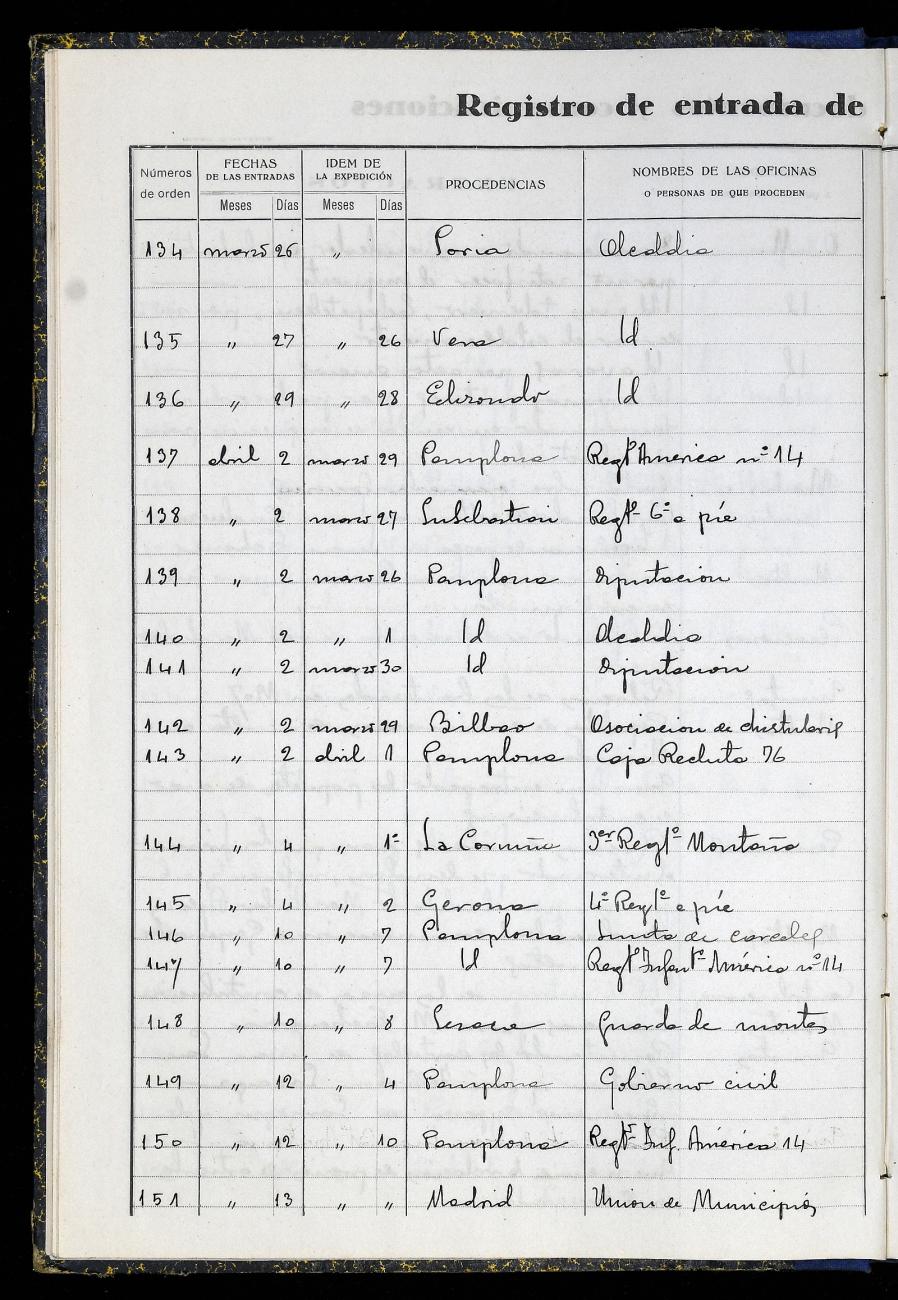 Registro de entrada de
Números de orden | FECHAS DE LAS ENTRADAS | IDEM DE LA EXPEDICIÓN | PROCEDENCIAS | NOMBRES DE LAS OFICINAS O PERSONAS DE QUE PROCEDEN
Meses | Días | Meses | Días
134 marzo 26 " Soria Alcaldia
135 " 27 " 26 Vera Id
136 " 29 " 28 Elizondo Id
137 abril 2 marzo 29 Pamplona Regtº America nº 14
138 " 2 marzo 27 S. Sebastian Regtº 6º a píe
139 " 2 marzo 26 Pamplona Diputacion
140 " 2 " 1 Id Alcaldia
141 " 2 marzo 30 Id Diputacion
142 " 2 marzo 29 Bilbao Asociacion de chistularis
143 " 2 abril 1 Pamplona Caja Recluta 76
144 " 4 " 1º La Coruña 3er Regtº Montaña
145 " 4 " 2 Gerona 4º Regtº a píe
146 " 10 " 7 Pamplona Junta de carceles
147 " 10 " 7 Id Regtº Infantª América nº 14
148 " 10 " 8 Lesaca Guarda de montes
149 " 12 " 4 Pamplona Gobierno civil
150 " 12 " 10 Pamplona Regtº Inf. América 14
151 " 13 " " Madrid Union de Municipios